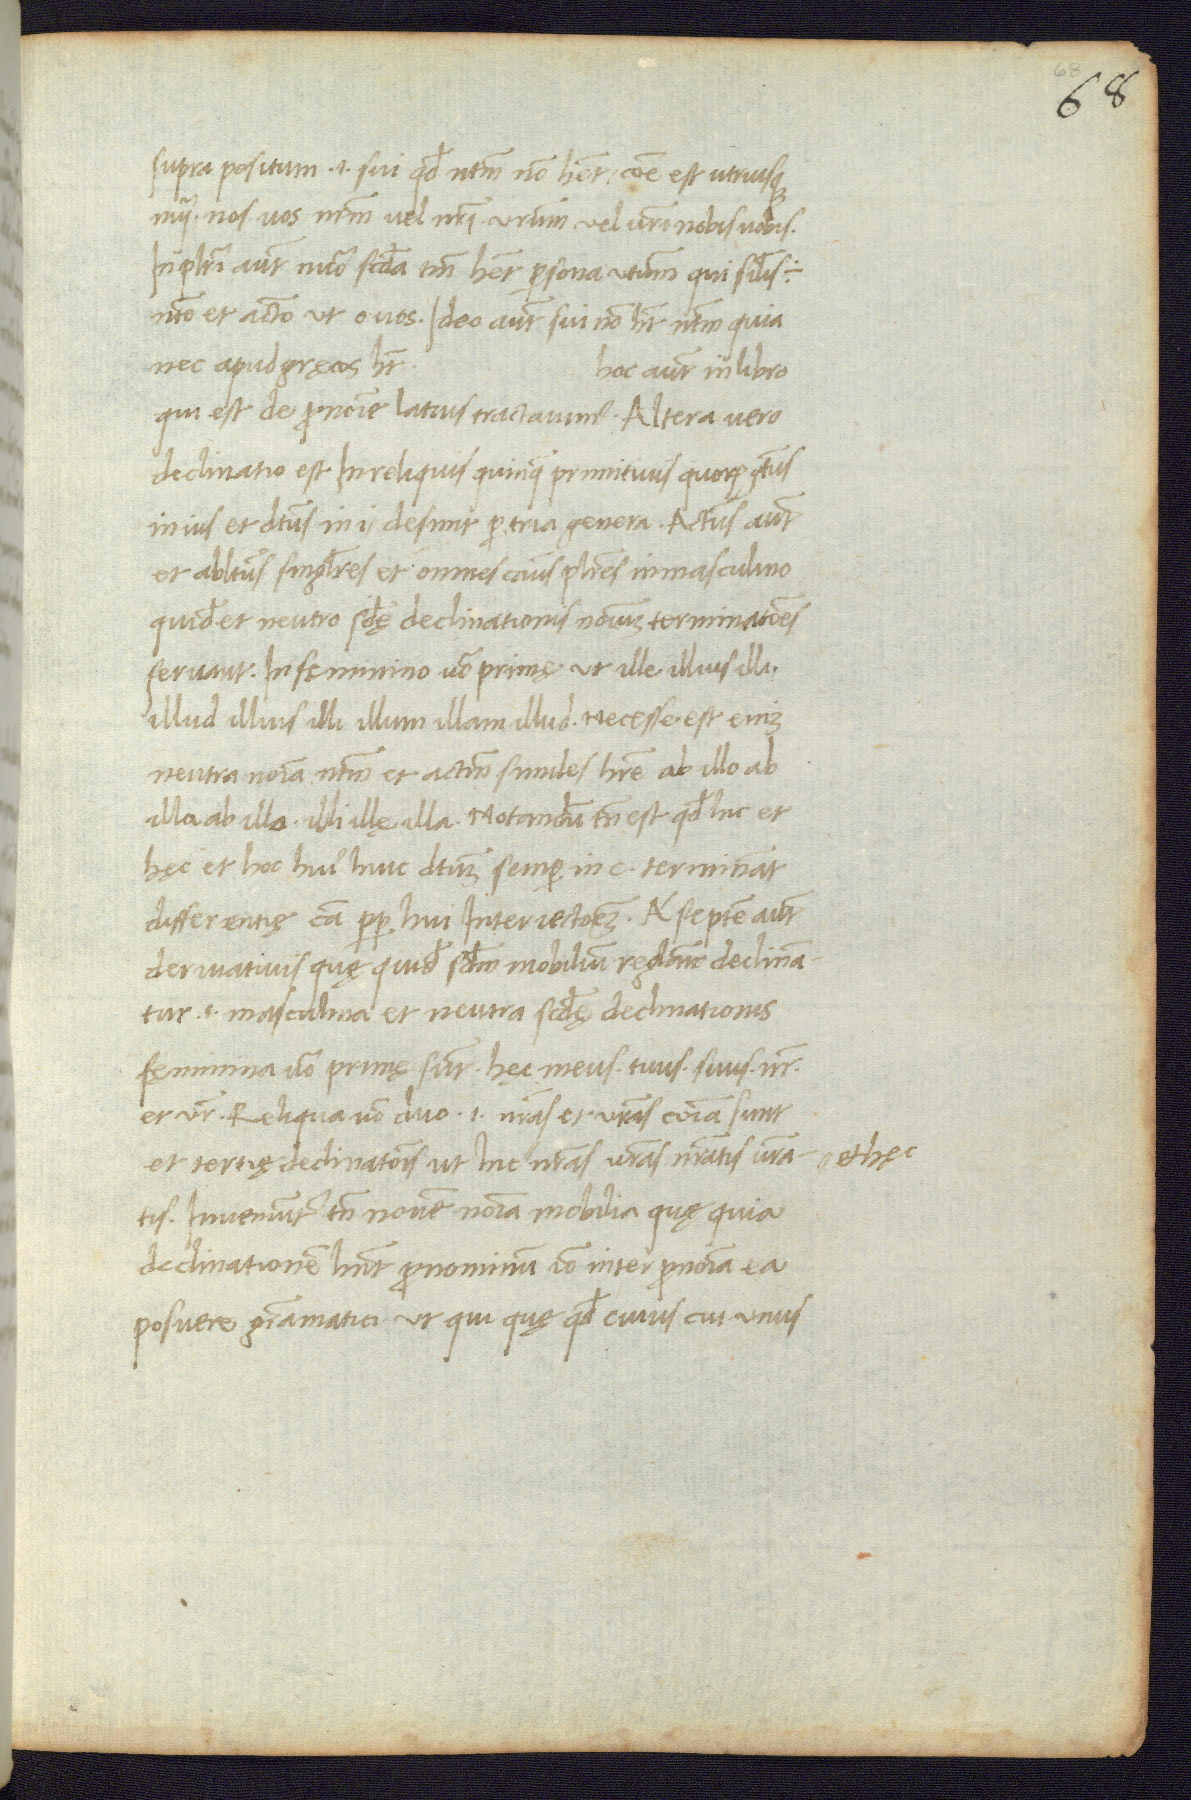 68
68
supra positum .i. sui qd̄ ntm̄ nō hēt, cōe est utriusq̨
nūi. nos uos nrm̄ vel nrī. vrūm vel urī nobis uobis.
In plrī aūt nūo scd̄a tm̄ hēt p̱sona vtiūm qui sil̄is ÷
ntō et actō ut o uos. Ideo aūt sui nō ht̄ ntm̄ quia
nec apud gręcos ht̄. hoc aūt in libro
qui est de p̱noīe latius tractauim᾽. Altera vero
declinatio est In reliquis quinq̨ primitiuis quoꝝ gt̄us
in ius et dt̄us in i, desinit p̱ tria genera. Act̄us aūt
et ablt̄us singl̄res et omnes cāus plrēs in masculino
quid̄ et neutro sd̄ę declinationis noīuꝫ terminatōes
seruant. In fęminino uō primę ut ille illius illi.
illud illius illi illum illam illud. Necesse est eniꝫ
neutra noīa ntm̄ et actm̄ similes hr̄e ab illo ab
illa ab illo. illi illę illa. Notandū tn̄ est qd̄ hic et
hęc et hoc hui᾽ huic dtūꝫ semp̱ in c. terminat
differentię cā pp̱ hui Interiectōeꝫ. A septē aūt
deriuatiuis quę quid̄ sd̄m mobiliūm declinā-
tur .i. masculina et neutra scd̄ę declinationis
fęminina uō primę sūt. hęc meus. tuus. suus. nr̄.
et vr̄. Reliqua uō duo .i. nrās et vrās cōia sunt
et tertię declinatōis ut hic nrās urās nrātis urā- // et hęc
tis. Inueniūt᾽ tn̄ nouē noīa mobilia quę quia
declinationē hnt̄ p̱nominūm iō inter p̱noīa ea
posuere grāmatici ut qui quę qd̄ cuius cui unus